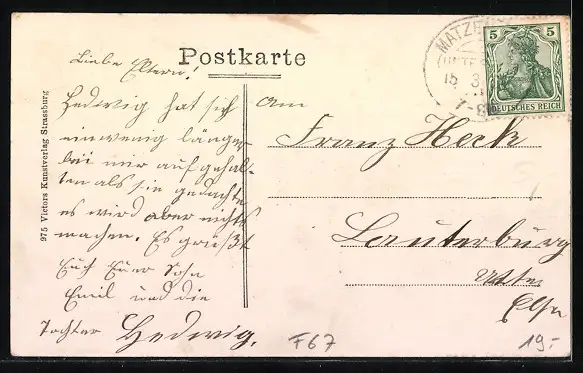 Postkarte
Liebe Eltern!
Hedwig hat sich
ein wenig länger
bei mir aufgehal-
ten als sie gedachte
es wird aber nichts
machen. Es grüßt
Euch Euer Sohn
Emil und die
Tochter Hedwig.
975 Victors Kunstverlag Strassburg
MATZE
(UNTER
15 3
7-8
5 5
DEUTSCHES REICH
An
Franz Heck
Lauterburg
Unter
Elsa
F67
19.-